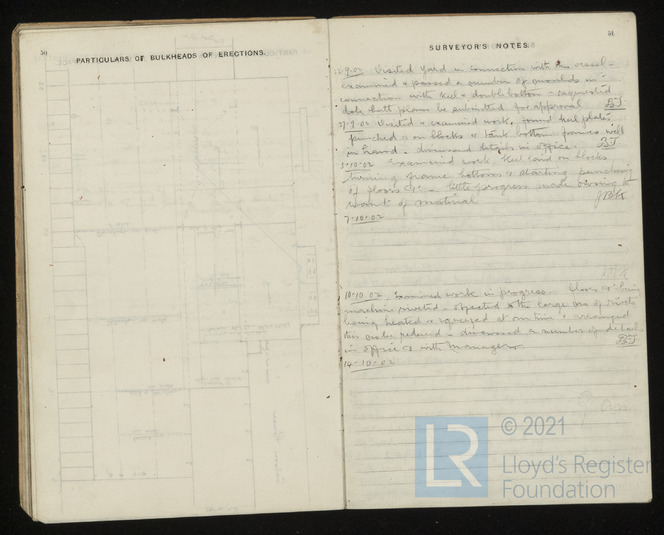 50
PARTICULARS OF BULKHEADS OF ERECTIONS.
51
SURVEYOR'S NOTES.
12.9.02 Visited Yard in connection with this vessel -
examined & passed a number of moulds in
connection with keel & double bottom - requested
butt plans be submitted for approval BT
27.9.02 Visited & examined work, found keel plates
punched & on blocks & tank bottom frames well
in hand. discussed details in office. BT
3.10.02 Examined work, keel laid on blocks
turning frame bottoms & starting punching
of floors &c - little progress made owing to
want of material
7-10-02
10.10.02. Examined work in progress. floors &c being
machine riveted - objected to the large no of rivets
being heated & squeezed at one time & arranged
this would be reduced - discussed a number of details
in office & with Manager BT
14-10-02
LR
© 2021
Lloyd's Register
Foundation